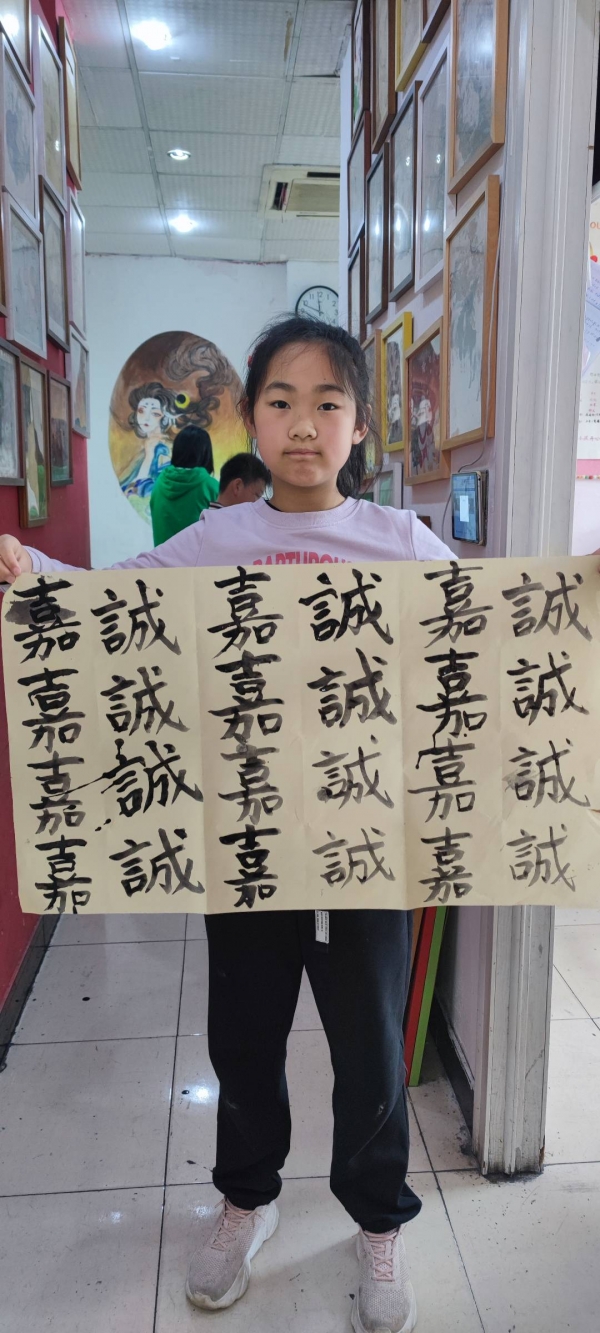 嘉誠嘉誠嘉誠
嘉誠嘉誠嘉誠
嘉誠嘉誠嘉誠
嘉誠嘉誠嘉誠